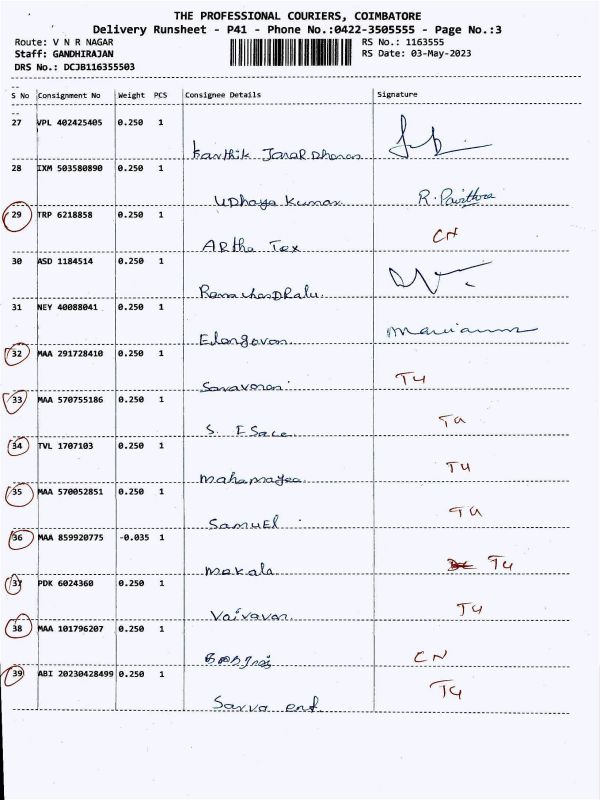 THE PROFESSIONAL COURIERS, COIMBATORE
Delivery Runsheet - P41 - Phone No.:0422-3505555 - Page No.:3
Route: V N R NAGAR RS No.: 1163555
Staff: GANDHIRAJAN RS Date: 03-May-2023
DRS No.: DCJB116355503
S No Consignment No Weight PCS Consignee Details Signature
27 VPL 402425405 0.250 1
Karthik Janar Dhanan
28 IXM 503580890 0.250 1
UDhaya Kumar R. Pavithra
29 TRP 6218858 0.250 1
ARtha Tex CN
30 ASD 1184514 0.250 1
RamachanDRalu
31 NEY 40088041 0.250 1
Elangovan
32 MAA 291728410 0.250 1
Saravanan T4
33 MAA 570755186 0.250 1
S.
34 TVL 1707103 0.250 1
T4
35 MAA 570052851 0.250 1
Samuel
36 MAA 859920775 -0.035 1
makala T4
37 PDK 6024360 0.250 1
T4
38 MAA 101796207 0.250 1
CN
39 ABI 20230428499 0.250 1
Sarva ent T4